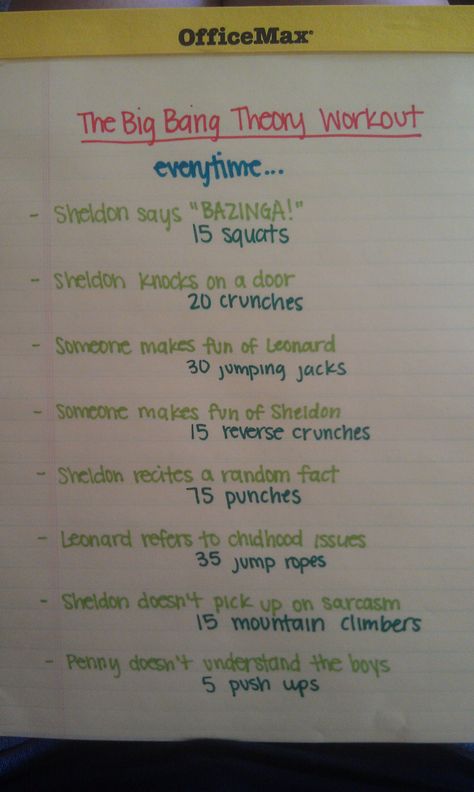 OfficeMax®
The Big Bang Theory Workout
everytime...
- Sheldon says "BAZINGA!"
15 squats
- Sheldon knocks on a door
20 crunches
- Someone makes fun of Leonard
30 jumping jacks
- Someone makes fun of Sheldon
15 reverse crunches
- Sheldon recites a random fact
75 punches
- Leonard refers to chidhood issues
35 jump ropes
- Sheldon doesn't pick up on sarcasm
15 mountain climbers
- Penny doesn't understand the boys
5 push ups